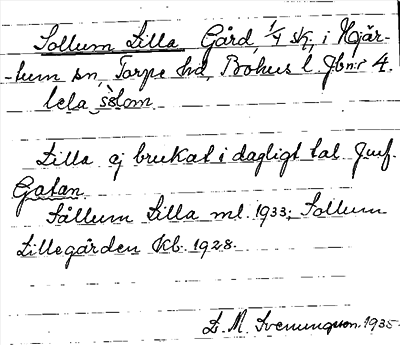 Sollum Lilla Gård, 1/4 sk, i Hjär-
-tum sn, Torpe hd, Bohus l. Jbnr 4.
lela sòlom
Lilla ej brukat i dagligt tal. Jmf.
Gatan
Sållum Lilla ml. 1933; Sollum
Lillegården Kb. 1928.
D. M. Svenungsson. 1935.